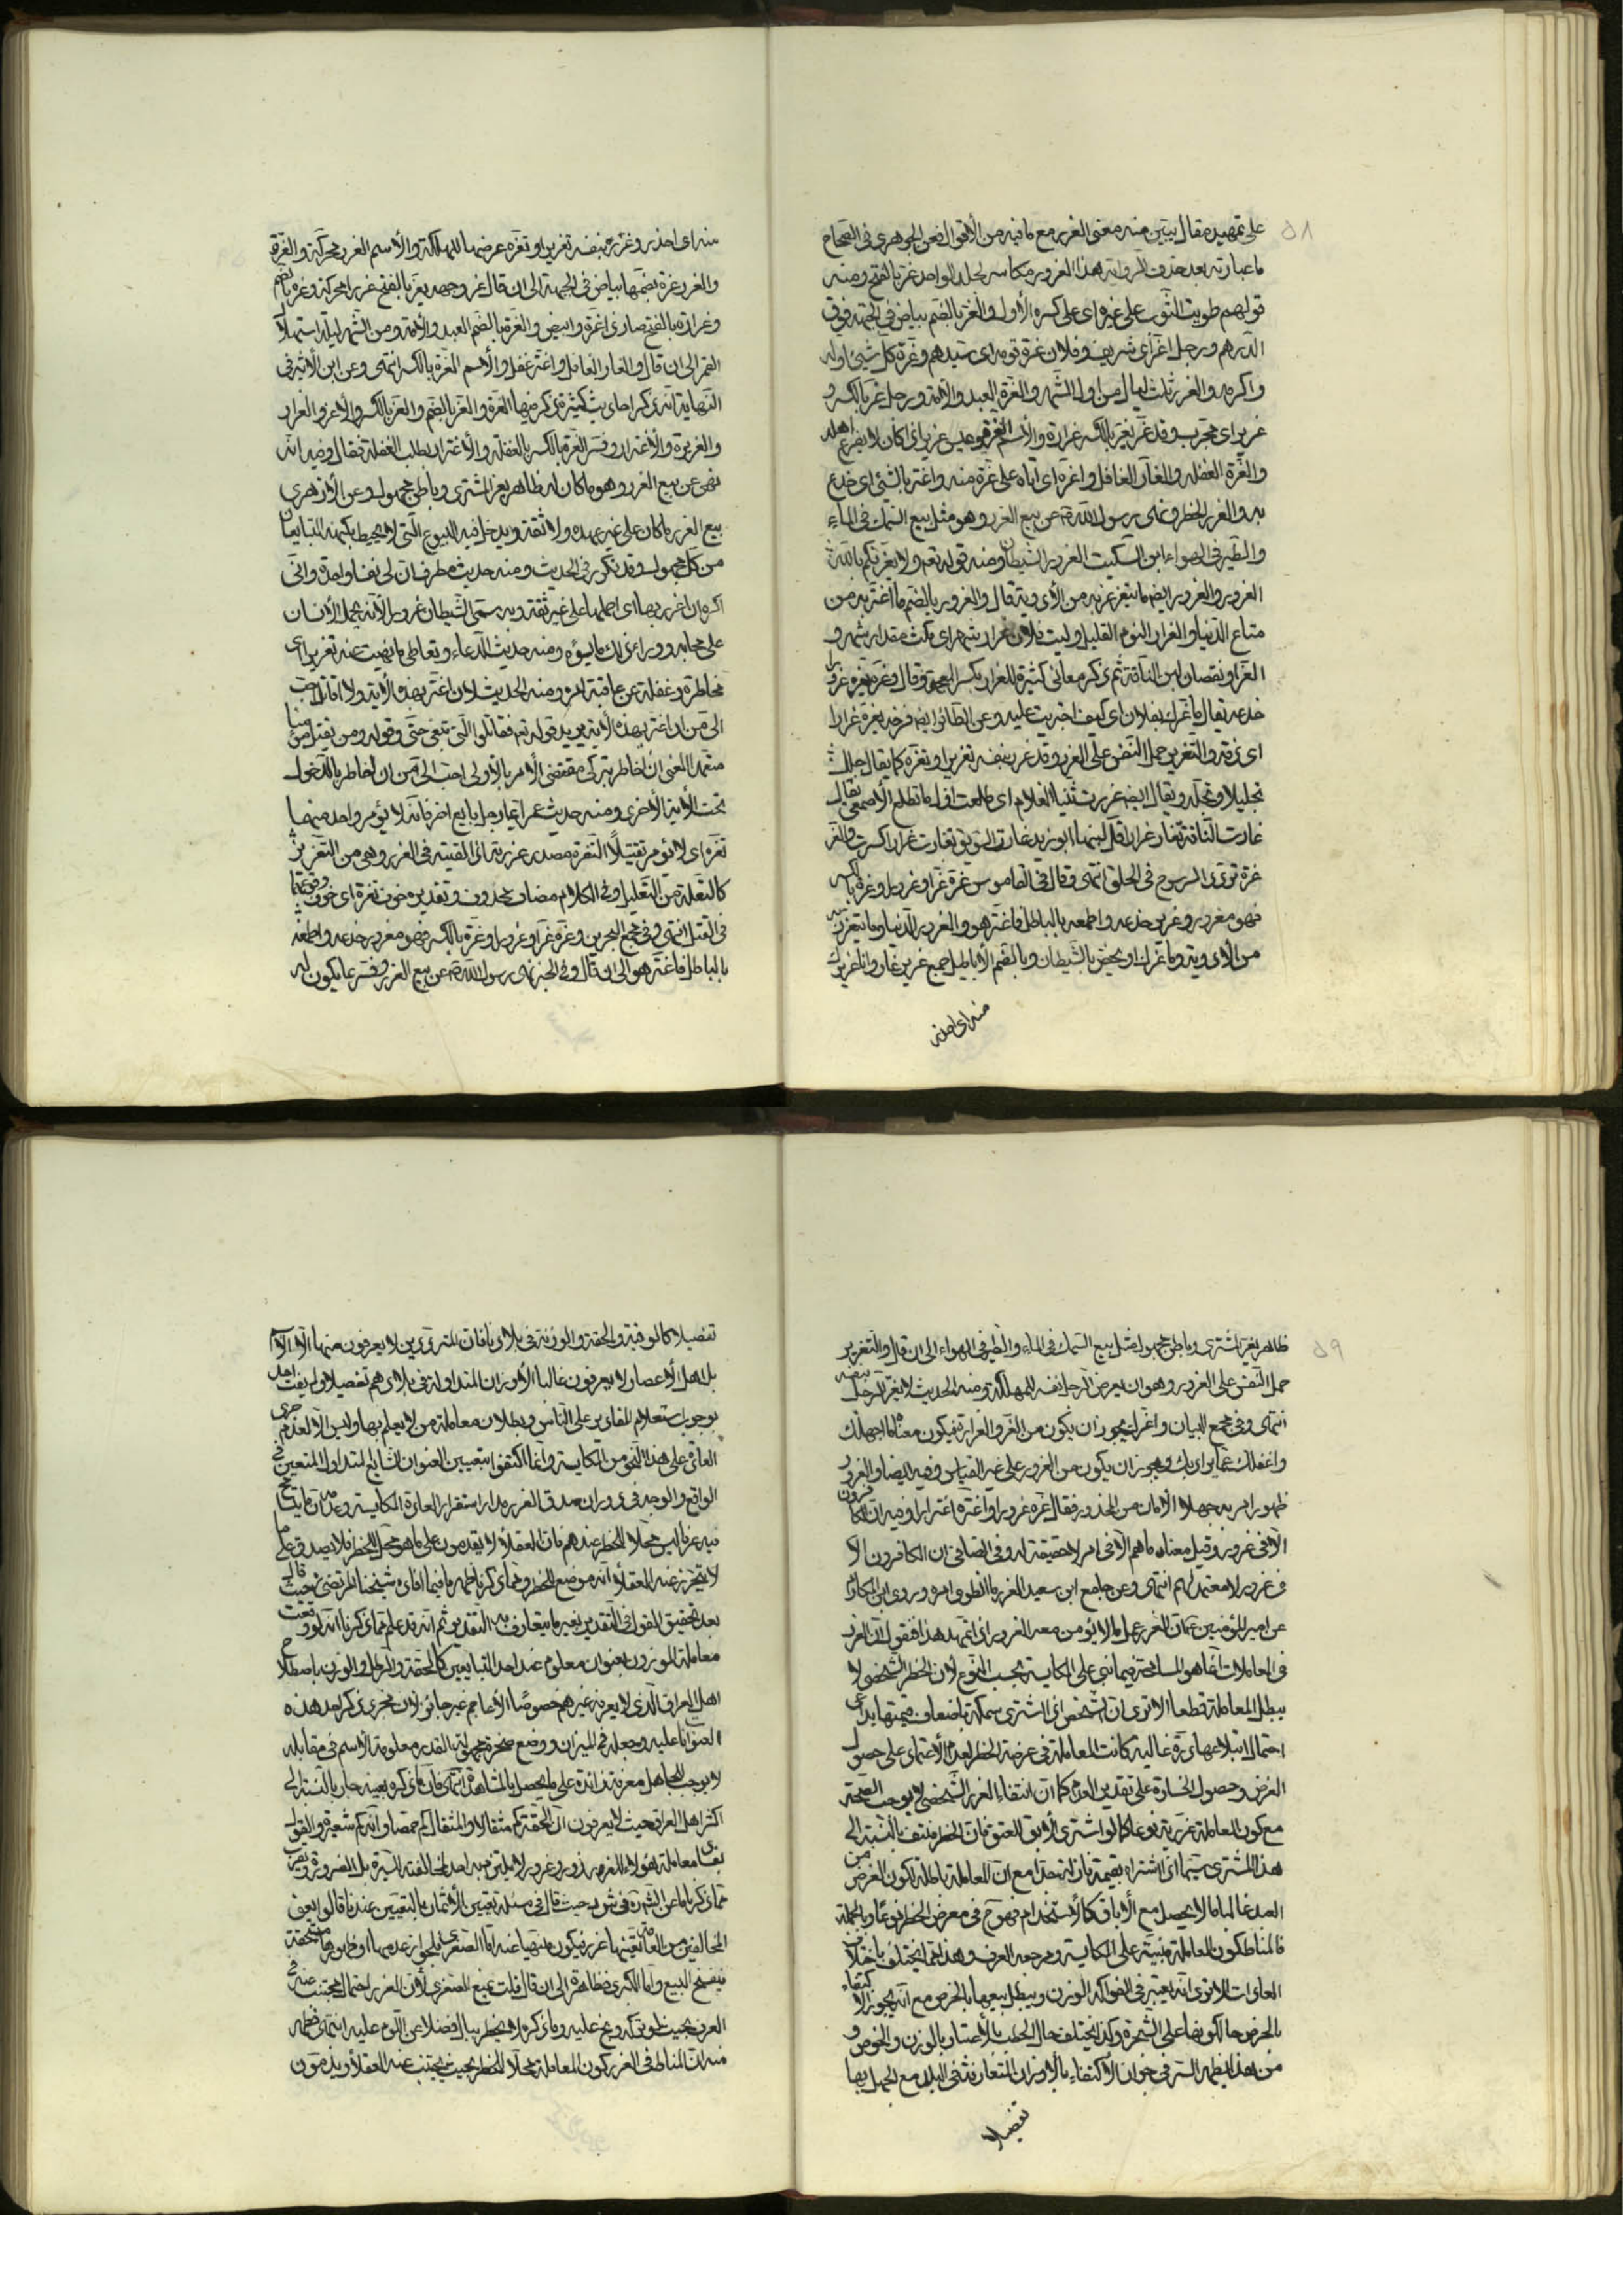 ٥٨
على تمهيد مقال يتبين منه معنى الغرر مع ما فيه من الأقوال فعن الجوهرى فى الصحاح
ما عبارته بعد حذف الزوايد هذا الغرور مكاسر الجلد الواحد غر بالفتح ومنه
قولهم طويت الثوب على غره اى على كسره الأول والغرة بالضم بياض فى الجبهة فوق
الدرهم ورجل اغر اى شريف وفلان غرة قومه اى سيدهم وغرة كل شيئ اوله
واكرمه والغرر ثلث ليال من اول الشهر والغرة العبد والأمة ورجل غر بالكسر و
غرير اى غير مجرب وقد غر يغر بالكسر غرارة والأسم الغرة وعيش غرير اذا كان لا يفزع اهله
والغرة الغفلة والغار الغافل واغره اى اتاه على غرة منه واغتر بالشئ اى خدع
به والغرر الخطر ونهى رسول الله ص عن بيع الغرر وهو مثل بيع السمك فى الماء
والطير فى الهواء ابن السكيت الغرور الشيطان ومنه قوله تعم ولا يغرنكم بالله
الغرور والغرور ايضم ما يتغرغر به من الأدوية قال والغرور بالضم ما اغتر به من
متاع الدنيا والغرار النوم القليل ولبث فلان غرار شهر اى مكث مقدار شهر و
الغرار نقصان لبن الناقة ثم ذكر معانى كثيرة للغرار بكسر المعجمة وقال وغره يغره غرورا
خدعه يقال ما غرك بفلان اى كيف اجتريت عليه وعن الطائر ايضم فرخه يغره غرارا
اى زقه والتغرير حمل النفس على الغرر وقد غرر بنفسه تغريرا وتغرة كما يقال حلل
تحليلا وتحلة ويقال ايضم غررت ثنيتا الغلام اى طلعت اول ما تطلع الأصمعى يقال
غارت الناقة تغار غرارا قل لبنها ابو زيد غارت السوق تغارت غرارا كسدت والغر
غرة تؤدى السرج فى الحلق انتهى وقال فى القاموس غره غرا وغرورا وغرة بالكسر
فهو مغرور وغرير خدعه واطمعه بالباطل فاغتر هو والغرور الدنيا وما يتغرغر به
من الأدوية وما غرك او يخص بالشيطان وبالضم الأباطيل جمع غرير غار وانا غريرك
منه اى احذر
منه اى احذر وغرر بنفسه تغريرا وتغرة عرضها للهلكة والأسم الغرر محركة والغرة
والغرر غرة بضمها بياض فى الجبهة الى ان قال غر وجهه يغر بالفتح غررا محركة وغرة بالضم
وغرارة بالفتح صار ذى اغرة وابيض والغرة بالضم العبد والأمة ومن الشهر ليلة استهلال
القمر الى ان قال والغار الغافل واغتر غفل والأسم الغرة بالكسر انتهى وعن ابن الأثير فى
النهاية انه ذكر احاديث كثيرة ذكر فيها الغرة والغر بالضم والغر بالكسر والأغر والغرار
والغريرة والأغترار وفسر الغرة بالكسر بالغفلة والأغترار بطلب الغفلة فقال وفيه انه
نهى عن بيع الغرر وهو ما كان له ظاهر يغر المشترى وباطن مجهول وعن الأزهرى
بيع الغرر ما كان على غير عهدة ولا ثقة ويدخل فيه البيوع التى لا يحيط بكنهها المتبايعان
من كل مجهول وقد تكرر فى الحديث ومنه حديث مطرف ان لى نفسا واحدة وانى
اكره ان اغرر بها اى احملها على غير ثقة وبه سمى الشيطان غرورا لأنه يحمل الأنسان
على محابه ووراء ذلك ما يسؤه ومنه حديث الدعاء وتعاطى ما نهيت عنه تغريرا اى
مخاطرة وغفلة عن عاقبة امره ومنه الحديث لان اغتر بهذه الأية ولا اقاتل احب
الى من ان اغتر بهذه الأية يريد قوله تعم فقاتلوا التى تبغى حتى وقوله ومن يقتل مؤمنا
متعمدا المعنى ان اخاطر بترك مقتضى الأمر بالأولى احب الى من ان اخاطر بالدخول
تحت الأية الأخرى ومنه حديث عمر ايما رجل بايع اخر فانه لا يؤمر واحد منهما
تغرة اى لا يؤمر تقتيلا التغرة مصدر غررته اذا القيته فى الغرر وهى من التغرير
كالتعلة من التعليل وفى الكلام مضاف محذوف وتقديره خوف تغرة اى خوف وقوعهما
فى القتل انتهى وفى مجمع البحرين وغره غرا وغرورا وغرة بالكسر فهو مغرور خدعه واطمعه
بالباطل فاغتر هو الى ان قال وفى الخبر نهى رسول الله ص عن بيع الغرر وفسر بما يكون له
٥٩
ظاهر يغر المشترى وباطن مجهول مثل بيع السمك فى الماء والطير فى الهواء الى ان قال والتغرير
حمل النفس على الغرور وهو ان يعرض الرجل نفسه للمهلكة ومنه الحديث لا يغرر الرجل بنفسه
انتهى وفى مجمع البيان واغرك يجوز ان يكون من الغر والغرارة فيكون معناه ما اجهلك
واغفلك عما يراد بك ويجوز ان يكون من الغرور على غير القياس وفيه ايضا والغرور
ظهور امر يه جهلا الأمان من المحذور فقال غره غرورا واغتره اغترارا وفيه ان الكافرون
الا فى غرور وقيل معناه ما هم الا فى امر لا حقيقة له وفى الصافى ان الكافرون الا
فى غرور لا معتمد لهم انتهى وعن جامع ابن سعيد الغرر ما انطوى امره وروى ابن المكارم
عن امير المؤمنين ع ان الغرر عمل ما لا يؤمن معه الغرور اذا تمهد هذا فنقول ان الغرر
فى المعاملات انما هو المسامحة فيما نبنى على المكايسة بحسب النوع لان الخطر الشخصى لا
يبطل المعاملة قطعا الا ترى ان الشخص اذا اشترى سمكة باضعاف قيمتها بداعى
احتمال ابتلاعها درة غالية كانت المعاملة فى عرضة الخطر لعدم الأعتماد على حصول
الغرض وحصول الخسارة على تقدير العدم كما ان انتفاء الغرر الشخصى لا يوجب الصحة
مع كون المعاملة غررية نوعا كما لو اشترى الأبق للعتق فان الخطر منتف بالنسبة الى
هذا المشترى سيما اذا اشتراه بقيمة نازلة جدا مع ان المعاملة باطلة لكون الغرض من
العبد غالبا ما لا يحصل مع الأباق كالأستخدام فهو ح فى معرض الخطر نوعا وبالجملة
فالمناط كون المعاملة مبنية على المكايسة ومرجعه العرف وهذا مما يختلف باختلاف
العادات الا ترى انه يعتبر فى الفواكه الوزن ويبطل بيعها بالخرص مع انه يجوز الأكتفاء
بالخرص حال كونها على الشجرة وكذا يختلف حال الحطب بالأعتبار بالوزن والخرص و
من هذا يظهر السر فى جواز الأكتفاء بالاوزان المتعارفة فى البلد مع الجهل بها
تفصيلا
تفصيلا كالوقية والحقة والوزنة فى بلادنا فان المترددين لا يعرفون منها الا الأسم
بل اهل الأعصار لا يعرفون غالبا الأوزان المتداولة فى بلادهم تفصيلا ولم يفت احد
بوجوب استعلام المقادير على الناس وبطلان معاملة من لا يعلم بها وليس الا لعدم جرى
العادة على هذا النحو من المكايسة وانما اكتفوا بتعيين العنوان الشايع المتداول المتعين فى
الواقع والوجه فى دوران صدق الغرر مدار استقرار العادة المكايسة وعدمه ان ما يتسامح
فيه عرفا ليس محلا للخطر عندهم فان العقلاء لا يقدمون على ما هو محل الخطر فلا يصدق على ما
لا يتحرز عنه العقلاء انه موضع للخطر ومما ذكرنا ظهر ما فيما افاده شيخنا المرتضى ره حيث قال
بعد تحقيق القول فى التقدير بغير ما يتعارف به التقدير ثم انه قد علم مما ذكرنا انه لو وقعت
معاملة الموزون بعنوان معلوم عند احد المتبايعين كالحقة والرطل والوزنة باصطلاح
اهل العراق الذى لا يعرفه غيرهم خصوصا الأعاجم غير جائز لان مجرد ذكر احد هذه
العنوانات عليه وجعله فى الميزان ووضع صخرة مجهولة القدر معلومة الأسم فى مقابله
لا يوجب للجاهل معرفة زائدة على ما يحصل بالمشاهدة انتهى فان ما ذكره بعينه جار بالنسبة الى
اكثر اهل العراق حيث لا يعرفون ان الحقة كم مثقالا والمثقال كم حمصا وانه كم شعيرة والقول
بفساد معاملة هؤلاء للغرر محذور وغرور لا يلتزم به احد لمخالفته السيرة بل الضرورة ويقرب
مما ذكرنا ما عن الشهيد ره فى شرح د حيث قال فى مسئلة تعيين الأثمان بالتعيين عندنا قالوا يعنى
المخالفين من العامة تعينها غرر فيكون منهيا عنه اما الصغرى فلجواز عدمها او ظهورها مستحقة
فينفسخ البيع واما الكبرى فظاهرة الى ان قال قلت نمنع الصغرى لأن الغرر احتمال مجتنب عنه فى
العرف بحيث لو تركه وبخ عليه وما ذكره لا يخطر ببال فضلا عن اللوم عليه انتهى فظهر
منه ان المناط فى الغرر كون المعاملة محلا للخطر بحيث يجتنب عنه العقلاء ويذمون